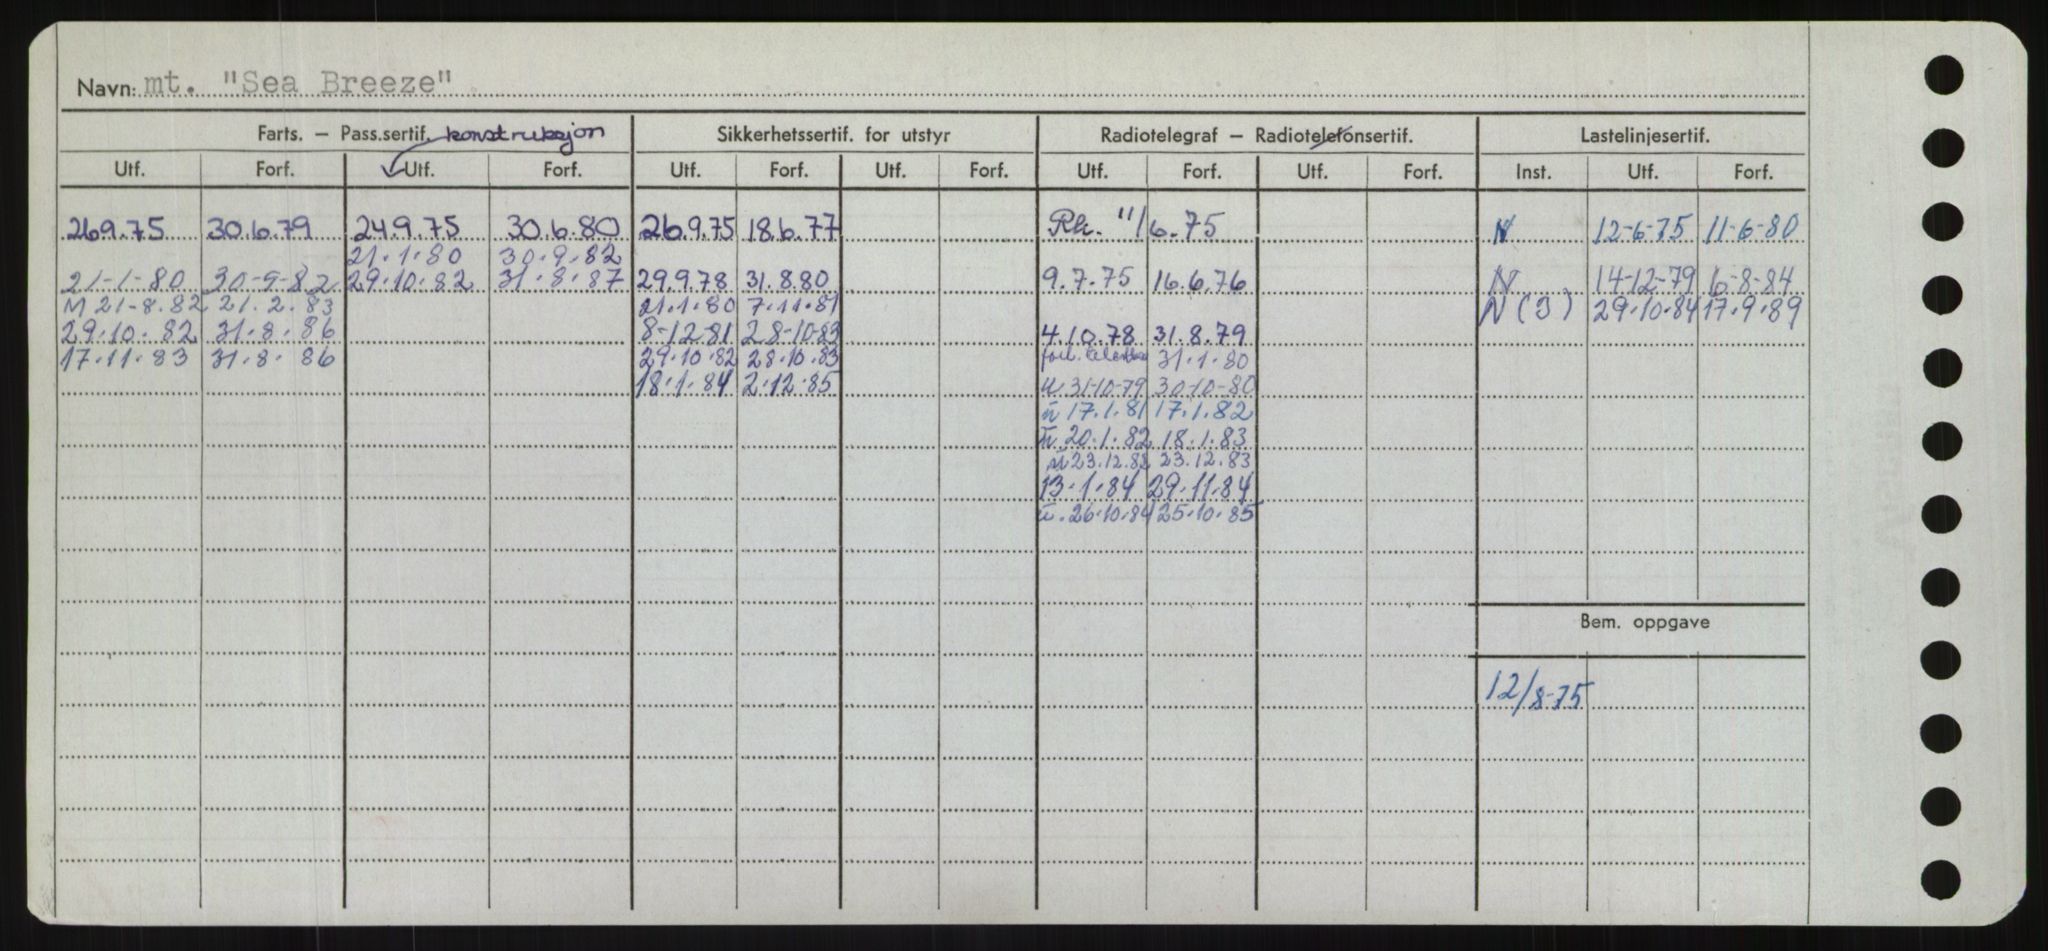 Navn: mt. "Sea Breeze"
Farts. – Pass.sertif. konstruksjon Sikkerhetssertif. for utstyr Radiotelegraf – Radiotelefonsertif. Lastelinjesertif.
Utf. Forf. Utf. Forf. Utf. Forf. Utf. Forf. Utf. Forf. Utf. Forf. Inst. Utf. Forf.
26.9.75 30.6.79 24.9.75 30.6.80 26.9.75 18.6.77 11/6.75 N 12-6-75 11-6-80
21.1.80 30.9.82
21-1-80 30-9-82 29.10.82 31.8.87 29.9.78 31.8.80 9.7.75 16.6.76 N 14-12-79 16-8-84
M 21-8.82 21.2.83 21.1.80 7.11.81 N (3) 29.10.84 17.9.89
29.10.82 31.8.86 8-12-81 28-10-83 4.10.78 31.8.79
17.11.83 31.8.86 29.10.82 28.10.83 31.1.80
18.1.84 2.12.85 31-10-79 30-10-80
17.1.81 17.1.82
20.1.82 18.1.83
23.12.82 23.12.83
13.1.84 29.11.84
26.10.84 25.10.85
Bem. oppgave
12/8-75